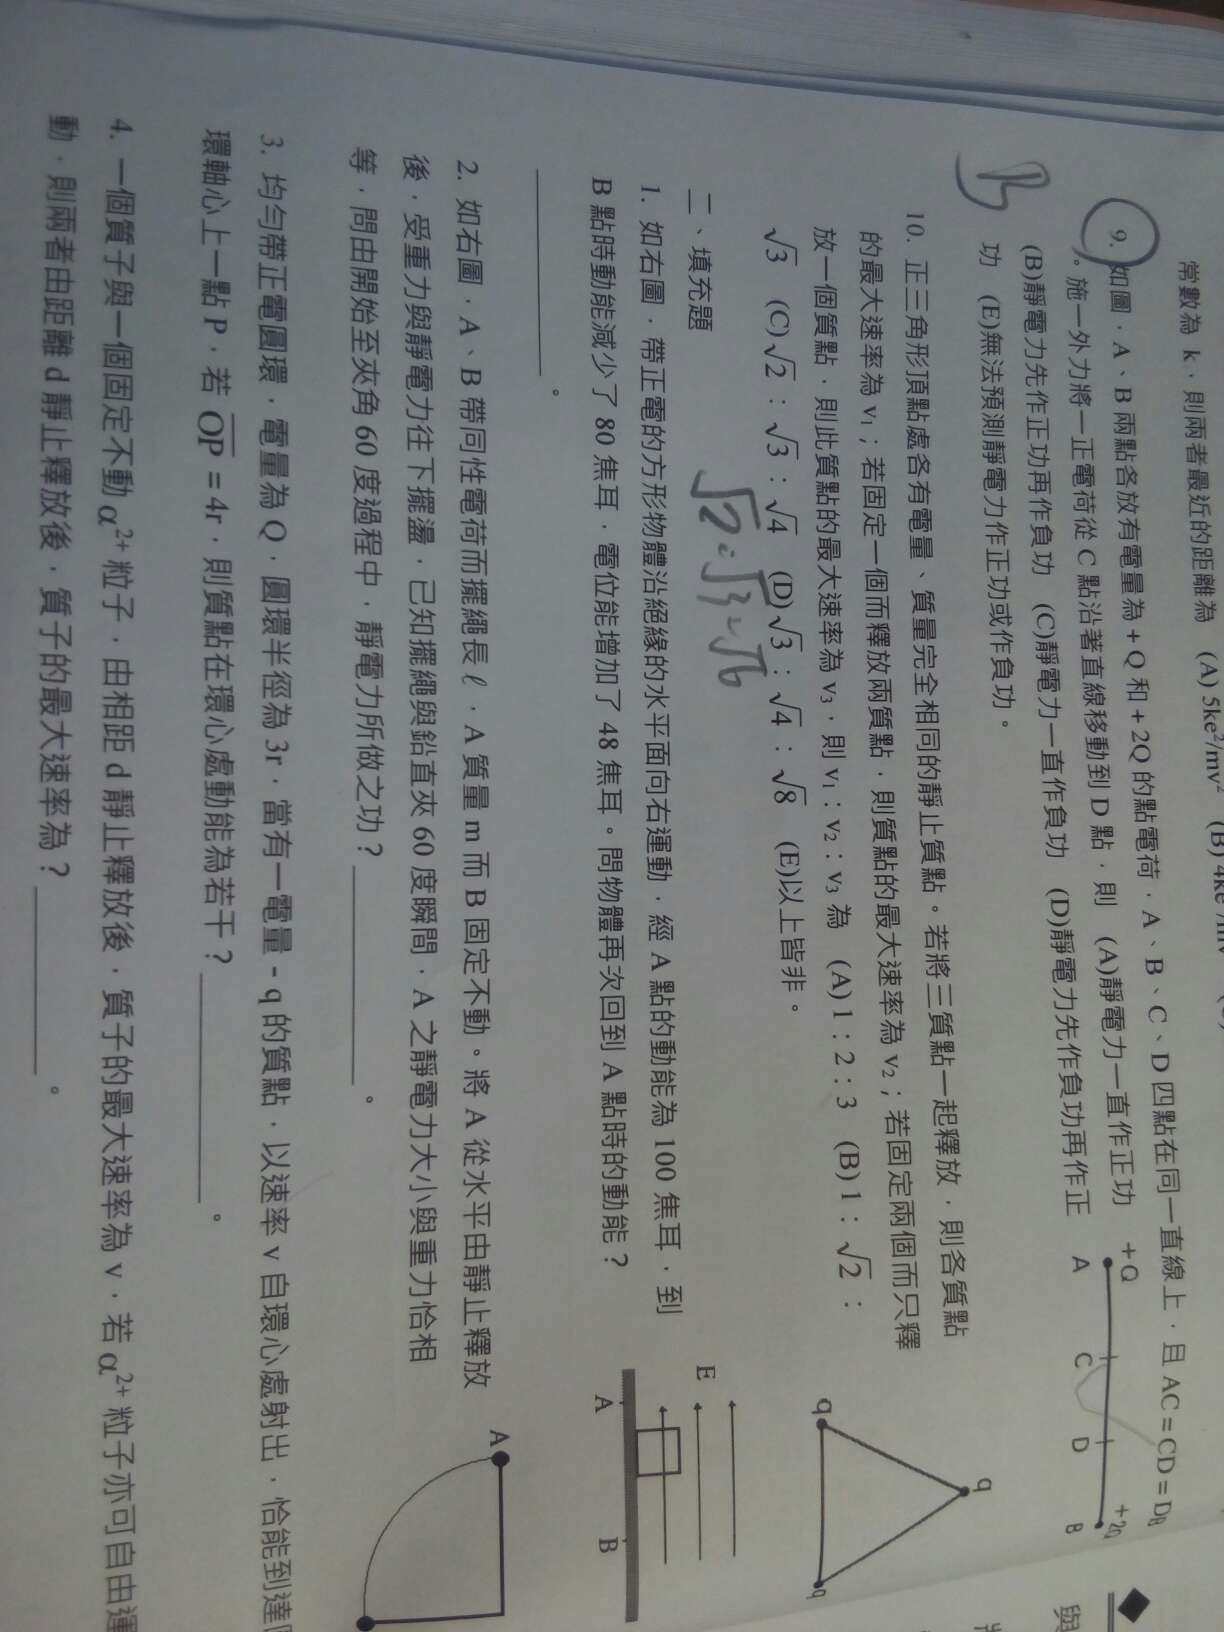 常數為 k，則兩者最近的距離為 (A) 5ke²/mv² (B) 4ke²/mv²
9. 如圖，A、B 兩點各放有電量為 + Q 和 + 2Q 的點電荷，A、B、C、D 四點在同一直線上，且 AC = CD = DB
。施一外力將一正電荷從 C 點沿著直線移動到 D 點，則 (A)靜電力一直作正功
(B)靜電力先作正功再作負功 (C)靜電力一直作負功 (D)靜電力先作負功再作正
功 (E)無法預測靜電力作正功或作負功。
+Q
+2Q
A
C
D
B
B
10. 正三角形頂點處各有電量、質量完全相同的靜止質點。若將三質點一起釋放，則各質點
的最大速率為 v₁；若固定一個而釋放兩質點，則質點的最大速率為 v₂；若固定兩個而只釋
放一個質點，則此質點的最大速率為 v₃，則 v₁：v₂：v₃ 為 (A) 1：2：3 (B) 1：√2：
√3 (C) √2：√3：√4 (D) √3：√4：√8 (E)以上皆非。
q
q
q
√2：√3：√6
二、填充題
1. 如右圖，帶正電的方形物體沿絕緣的水平面向右運動，經 A 點的動能為 100 焦耳，到
B 點時動能減少了 80 焦耳，電位能增加了 48 焦耳。問物體再次回到 A 點時的動能？
。
E
A
B
2. 如右圖，A、B 帶同性電荷而擺繩長 ℓ，A 質量 m 而 B 固定不動。將 A 從水平由靜止釋放
後，受重力與靜電力往下擺盪，已知擺繩與鉛直夾 60 度瞬間，A 之靜電力大小與重力恰相
等，問由開始至夾角 60 度過程中，靜電力所做之功？ 。
A
3. 均勻帶正電圓環，電量為 Q，圓環半徑為 3r，當有一電量 - q 的質點，以速率 v 自環心處射出，恰能到達
環軸心上一點 P，若 OP = 4r，則質點在環心處動能為若干？ 。
4. 一個質子與一個固定不動 α²⁺ 粒子，由相距 d 靜止釋放後，質子的最大速率為 v，若 α²⁺ 粒子亦可自由運
動，則兩者由距離 d 靜止釋放後，質子的最大速率為？ 。
與